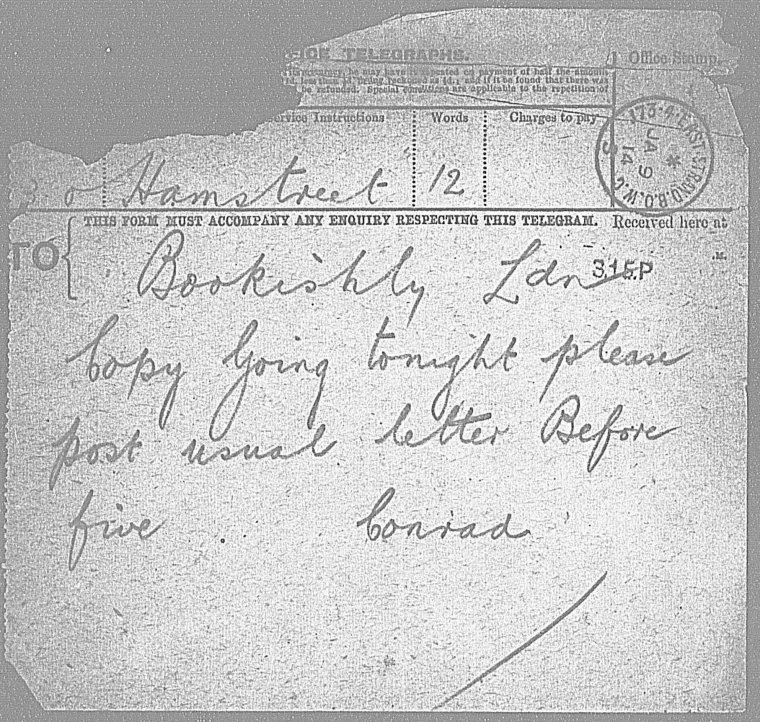 ICE TELEGRAPHS.
its accuracy, he may have it repeated on payment of half the amount
less than 1d. being reckoned as 1d.; and if it be found that there was
be refunded. Special conditions are applicable to the repetition of
Office Stamp.
ervice Instructions Words Charges to pay
Hamstreet 12
EAST STRAND.B.O.W.C.
JA 9
14
THIS FORM MUST ACCOMPANY ANY ENQUIRY RESPECTING THIS TELEGRAM. Received here at
TO Bookishly Ldn 315P M.
Copy Going tonight please
post usual letter Before
five Conrad